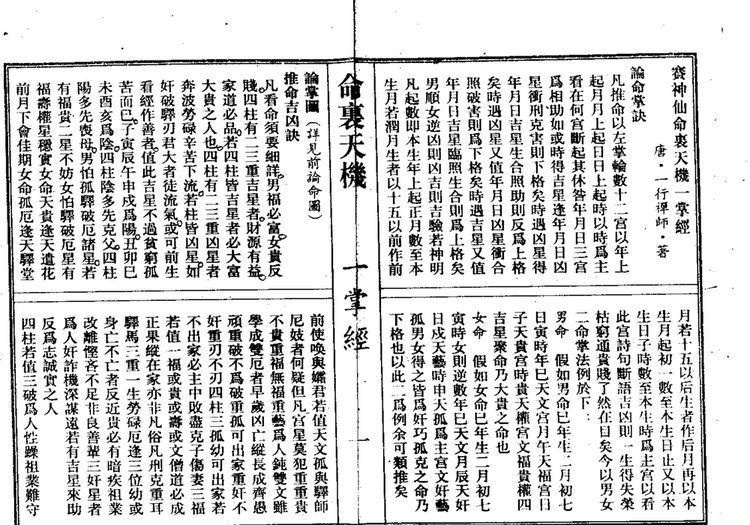 賽神仙命裏天機一掌經
唐・一行禪師・著
論命掌訣
凡推命以左掌輪數十二宮以年上
起月月上起日日上起時以時為主
看在何宮斷起其休咎年月日三宮
為相助如或時得吉星逢年月日凶
星衝刑克害則下格矣時遇凶星得
年月日吉星生合照助則反為上格
矣時遇凶星又值年月日凶星衝合
照破害則為下格矣時遇吉星又值
年月日吉星臨照生合則為上格矣
男順女逆凶則凶吉則吉驗若神明
凡起數即本生年上起正月數至本
生月若潤月生者以十五以前作前
月若十五以后生者作后月再以本
生月起初一數至本生日止又以本
生日子時數至本生時為主宮以看
此宮詩句斷語吉凶則一生得失榮
枯窮通貴賤了然在目矣今以男女
二命掌法例於下
男命 假如男命巳年生二月初七
日寅時年巳天文宮月午天福宮日
子天貴宮時貴天權宮文福貴權四
吉星聚命乃大貴之命也
女命 假如女命巳年生二月初七
寅時女則逆數年巳天文月辰天奸
日戌天藝時申天孤為主宮文奸藝
孤男女得之皆為奸巧孤克之命乃
下格也以此二為例余可類推矣
命裏天機 一掌經 一
論掌圖(詳見前論命圖)
推命吉凶訣
凡看命須要細詳男福必富女貴反
賤四柱有二三重吉星者財源有益
家道必品若四柱皆吉星者必大富
大貴之人也四柱有二三重凶星者
奔波勞碌辛苦下流若柱皆凶星如
奸破驛刃君大者徒流氣或可前生
看經作善者值此吉星不過貧窮孤
苦而已子寅辰午申戌為陽丑卯巳
未酉亥為陰四柱陰多先克父四柱
陽多先喪母男怕孤驛破厄諸星若
有福貴二星不妨女怕驛破厄星有
福壽權星穩實女命天貴逢天遣花
前月下會佳期女命孤厄逢天驛堂
前使喚與孀君若值天文孤與驛師
尼妓者何疑但凡宮星莫犯重重貴
不貴重福無福重藝為人鈍雙文雖
學成雙厄者早歲凶亡縱長成齊愚
頑重破不為破重孤可出家重奸不
奸重刃不刃四柱三孤幼可出家若
不出家必主中敗盡克子傷妻三福
若值一福或貴或壽或文僧道必成
正果縱在家亦非凡俗凡刑克重耳
驛馬三重一生勞碌厄逢三位幼或
身亡不亡者反近貴必有暗疾祖業
改離慳吝不足非良善輩三奸星者
為人奸詐機深謀遠若有吉星來助
反為忠誠實之人
四柱若值三破為人性躁祖業難守